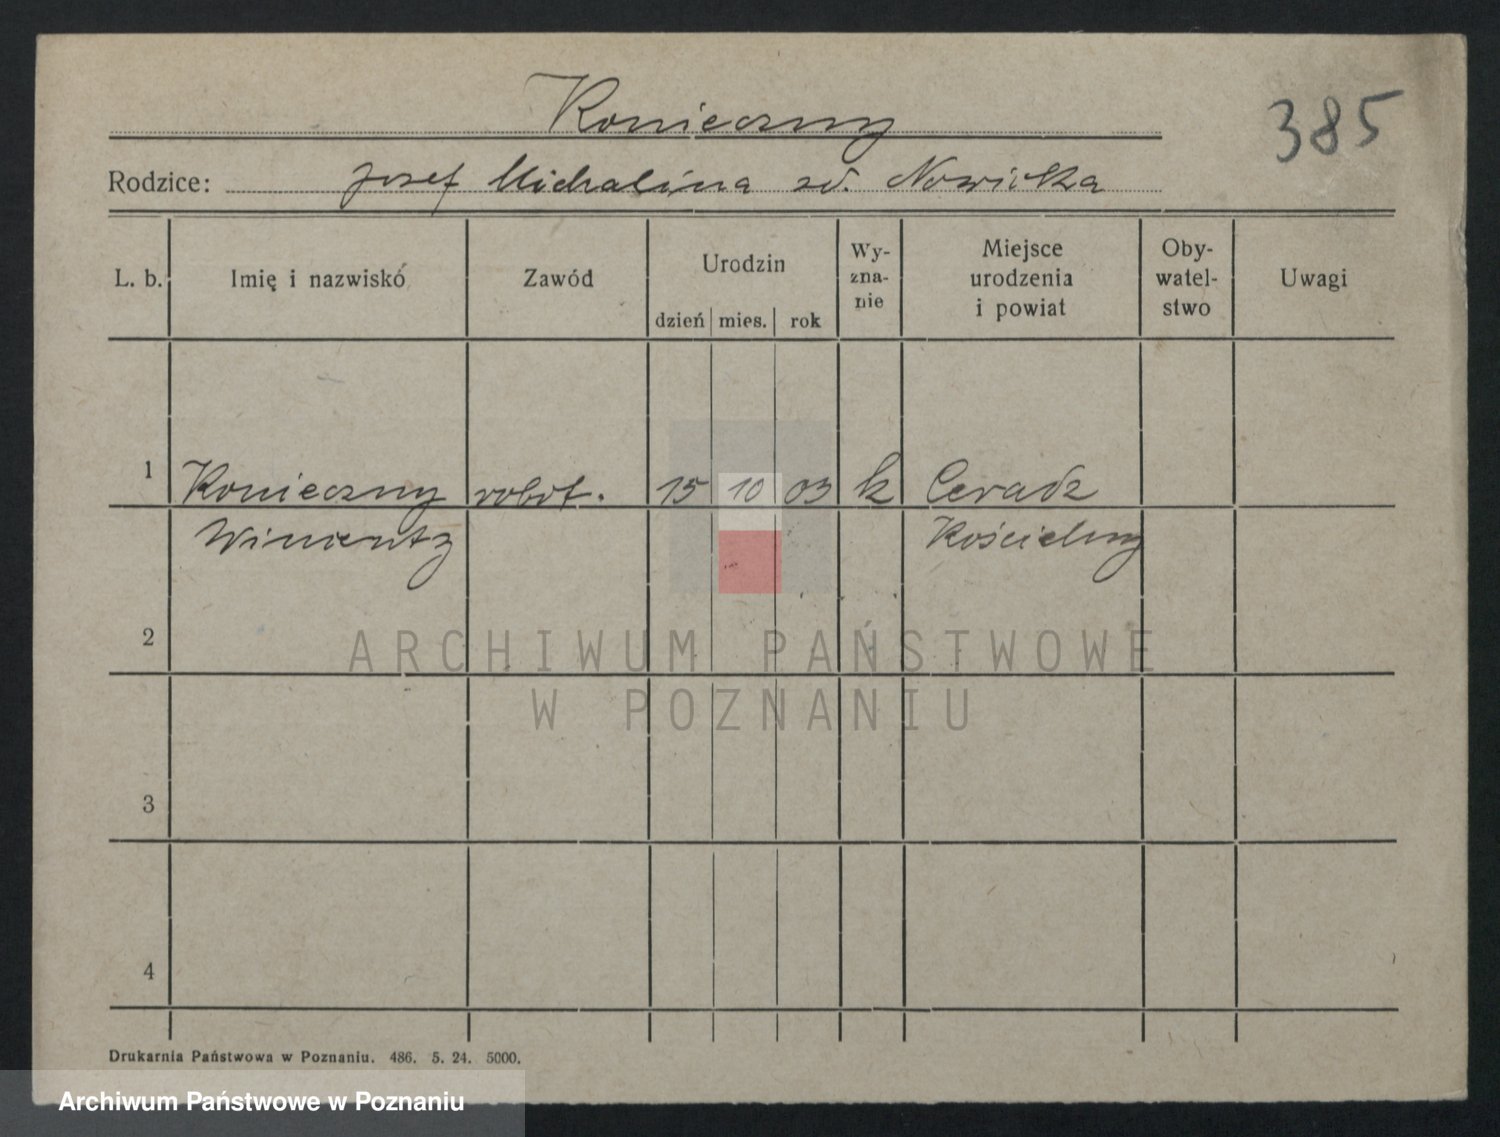 Konieczny
385
Rodzice: Josef Michalina zd. Nowicka
L. b. Imię i nazwisko Zawód Urodzin dzień mies. rok Wy-zna-nie Miejsce urodzenia i powiat Oby-watel-stwo Uwagi
1 Konieczny robot. 15 10 03 k Ceradz
Kościelny
2
3
4
ARCHIWUM PAŃSTWOWE
W POZNANIU
Drukarnia Państwowa w Poznaniu. 486. 5. 24. 5000.
Archiwum Państwowe w Poznaniu